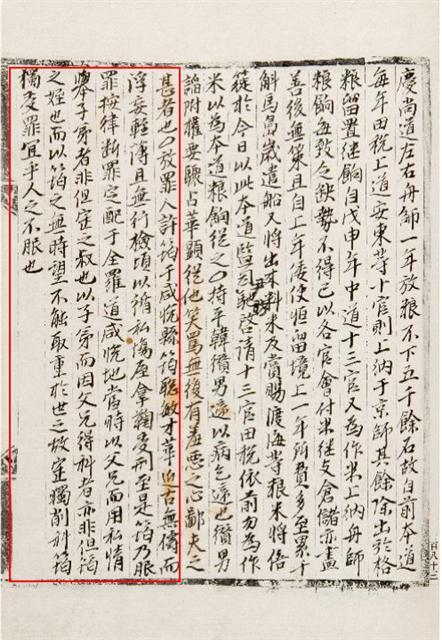 慶尚道左右舟師一年放粮不下五千餘石故自前本道
每年田稅上道安東等十官則上納于京師其餘除出於格
粮留置継餉自戊申年中道十三官又為作米上納舟師
粮餉每致欠缺勢不得已以各官會付米継支倉儲亦盡
善後無策且自上年倭使恒留境上一年所費多至累千
斛馬島歲遣船又將出來料米及賞賜渡海等粮米將倍
蓰於今日以此本道監司馳啓請十三官田稅依前勿為作
米以為本道粮餉從之○持平韓纘男遞以病乞遞也纘男
諂附權要驟占華顯從他笑罵無復有羞惡之心鄙夫之
甚者也○放罪人許筠于咸悦縣筠聡敏才華近古無儔而
浮妄輕薄且無行檢頃以循私傷座拿鞠受刑至是筠乃服
罪按律断罪定配于全羅道咸悦地當時以父兄而用私情
擧子弟者非但寔之叔也以子弟而因父兄得科者亦非但筠
之姪也而以筠之無時望不能取重於世之故寔獨削科筠
獨受罪宜乎人之不服也
百八十二